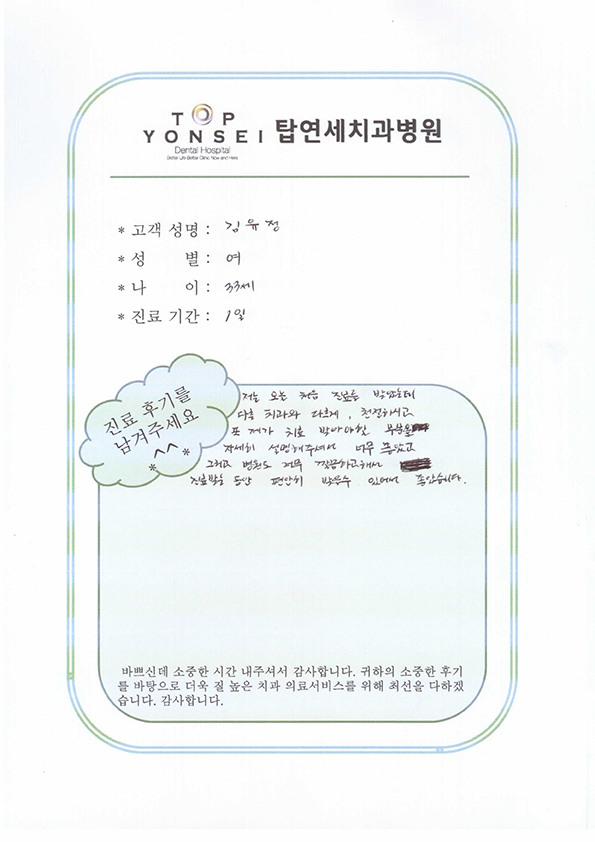 TOP
YONSEI 탑연세치과병원
Dental Hospital
Better Life Better Clinic Now and Here
* 고객 성명 : 김유정
* 성 별 : 여
* 나 이 : 33세
* 진료 기간 : 1일
진료 후기를
남겨주세요
*^^*
저는 오늘 처음 진료를 받았는데
다른 치과와 다르게, 친절하시고
또 제가 치료 받아야할 부분을
자세히 설명해주셔서 너무 좋았고
그리고 병원도 너무 깔끔하고해서
진료받는 동안 편안히 받을수 있어서 좋았습니다.
바쁘신데 소중한 시간 내주셔서 감사합니다. 귀하의 소중한 후기
를 바탕으로 더욱 질 높은 치과 의료서비스를 위해 최선을 다하겠
습니다. 감사합니다.